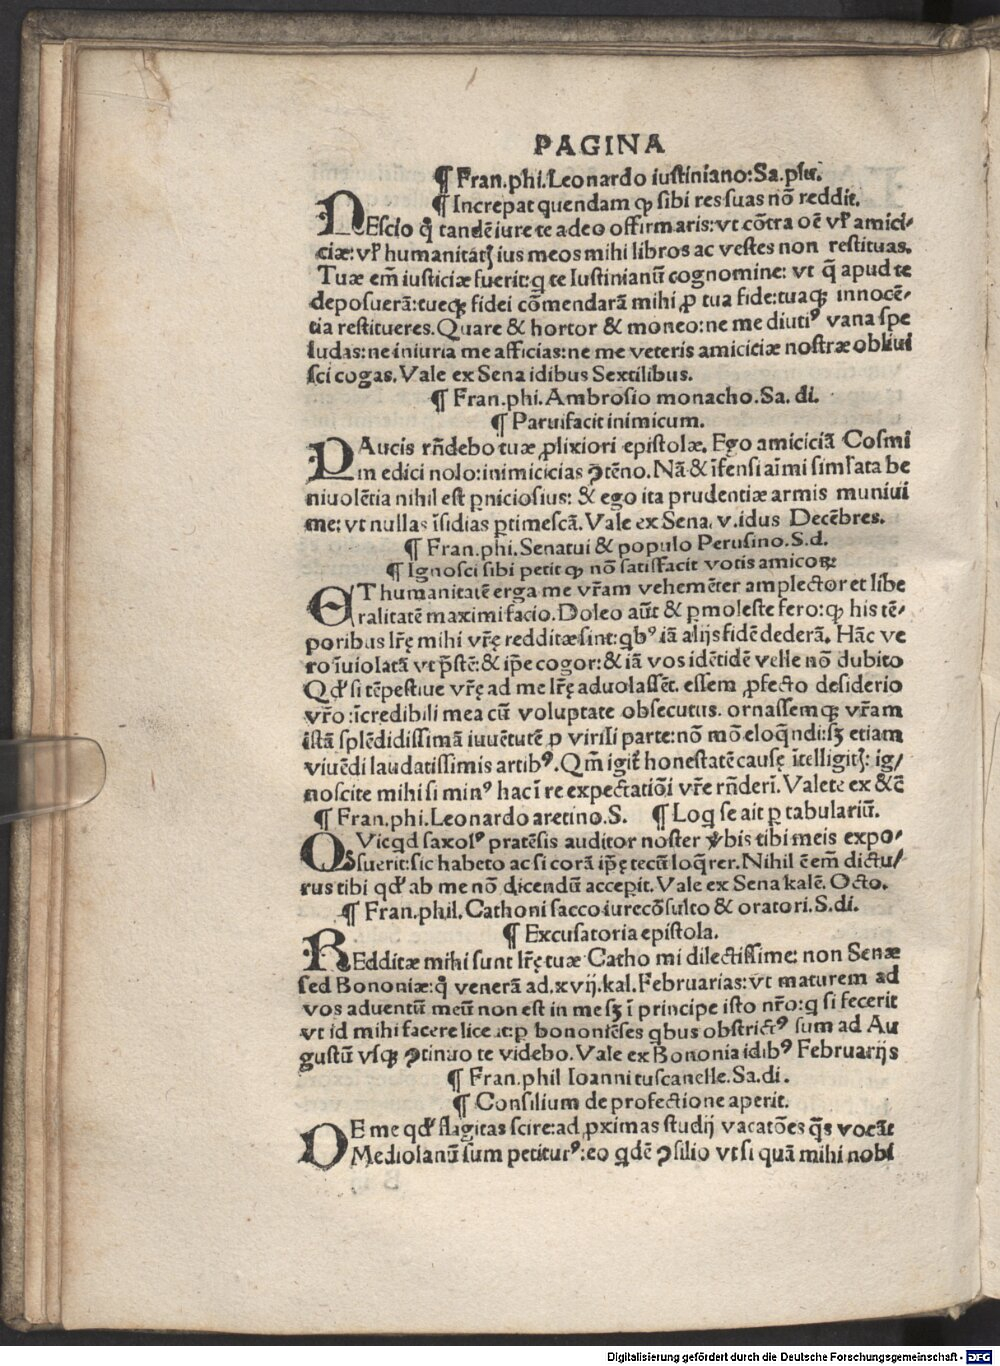 PAGINA
¶ Fran.phi.Leonardo iustiniano:Sa.plu.
¶ Increpat quendam ꝙ sibi res suas nō reddit.
NEscio q̄ tandē iure te adeo offirmaris:vt cōtra oē vꝉ amici-
ciæ:vꝉ humanitatꝭ ius meos mihi libros ac vestes non restituas.
Tuæ em̄ iusticiæ fuerit:q te Iustinianū cognomine: vt q̄ apud te
deposuerā:tueqꝫ fidei cōmendarā mihi ꝓ tua fide:tuaqꝫ innocē-
tia restitueres.Quare & hortor & moneo:ne me diutiꝰ vana spe
ludas:ne iniuria me afficias:ne me veteris amiciciæ nostræ obliui
sci cogas.Vale ex Sena idibus Sextilibus.
¶ Fran.phi.Ambrosio monacho.Sa. di.
¶ Paruifacit inimicum.
PAucis rn̄debo tuæ ꝓlixiori epistolæ. Ego amiciciā Cosmi
medici nolo:inimicicias ꝯtēno. Nā & īfensi aīmi simlata be
niuolētia nihil est ꝑniciosius: & ego ita prudentiæ armis muniui
me: vt nullas īsidias ꝑtimescā. Vale ex Sena. v.idus Decēbres.
¶ Fran.phi.Senatui & populo Perusino.S.d.
¶ Ignosci sibi petit ꝙ nō satisfacit votis amicoꝝ
ET humanitatē erga me vr̄am vehemēter amplector et libe
ralitatē maximi facio.Doleo aūt & ꝑmoleste fero:ꝙ his tē-
poribus lr̄ę mihi vr̄ę redditæ sint:qbꝰ iā alijs fidē dederā. Hāc ve
ro īuiolatā vt p̄stē:& ip̄e cogor:& iā vos idētidē velle nō dubito
Qđ si tēpestiue vr̄ę ad me lr̄ę aduolassēt. essem ꝓfecto desiderio
vr̄o :īcredibili mea cū voluptate obsecutus. ornassemqꝫ vr̄am
istā splēdidissimā iuuētutē ꝓ virili parte:nō mō eloq̄ndi:sꝫ etiam
viuēdi laudatissimis artibꝰ.Qm̄ igit̄ honestatē causę ītelligitꝭ: ig/
noscite mihi si minꝰ hac ī re expectatiōi vr̄e rn̄deri. Valete ex &c̄
¶ Fran.phi.Leonardo aretino.S. ¶ Loq se ait ꝑ tabulariū.
QVicqd saxolꝰ pratēsis auditor noster v̄bis tibi meis expo-
suerit:sic habeto ac si corā ip̄ę tecū loq̄rer. Nihil ēem̄ dictu/
rus tibi qđ ab me nō dicendū acceꝑit. Vale ex Sena kalē. Octo.
¶ Fran.phil. Cathoni sacco iurecōsulto & oratori.S.di.
¶ Excusatoria epistola.
REdditæ mihi sunt lr̄ę tuæ Catho mi dilectissime: non Senæ
sed Bononiæ:q̄ venerā ad.xvij.kal.Februarias:vt maturem ad
vos aduentū meū non est in me sꝫ ī principe isto nr̄o:q si fecerit
vt id mihi facere liceat:ꝑ bononiēses qbus obstrictꝰ sum ad Au
gustū vsqꝫ ꝯtinuo te videbo. Vale ex Bononia idibꝰ Februarijs
¶ Fran.phil Ioanni tuscanelle.Sa.di.
¶ Consilium de profectione aperit.
DE me qđ flagitas scire:ad ꝓximas studij vacatōes q̄s vocāt
Mediolanū sum petiturꝰ:eo qdē ꝯsilio vt si quā mihi nobi
Digitalisierung gefördert durch die Deutsche Forschungsgemeinschaft - DFG